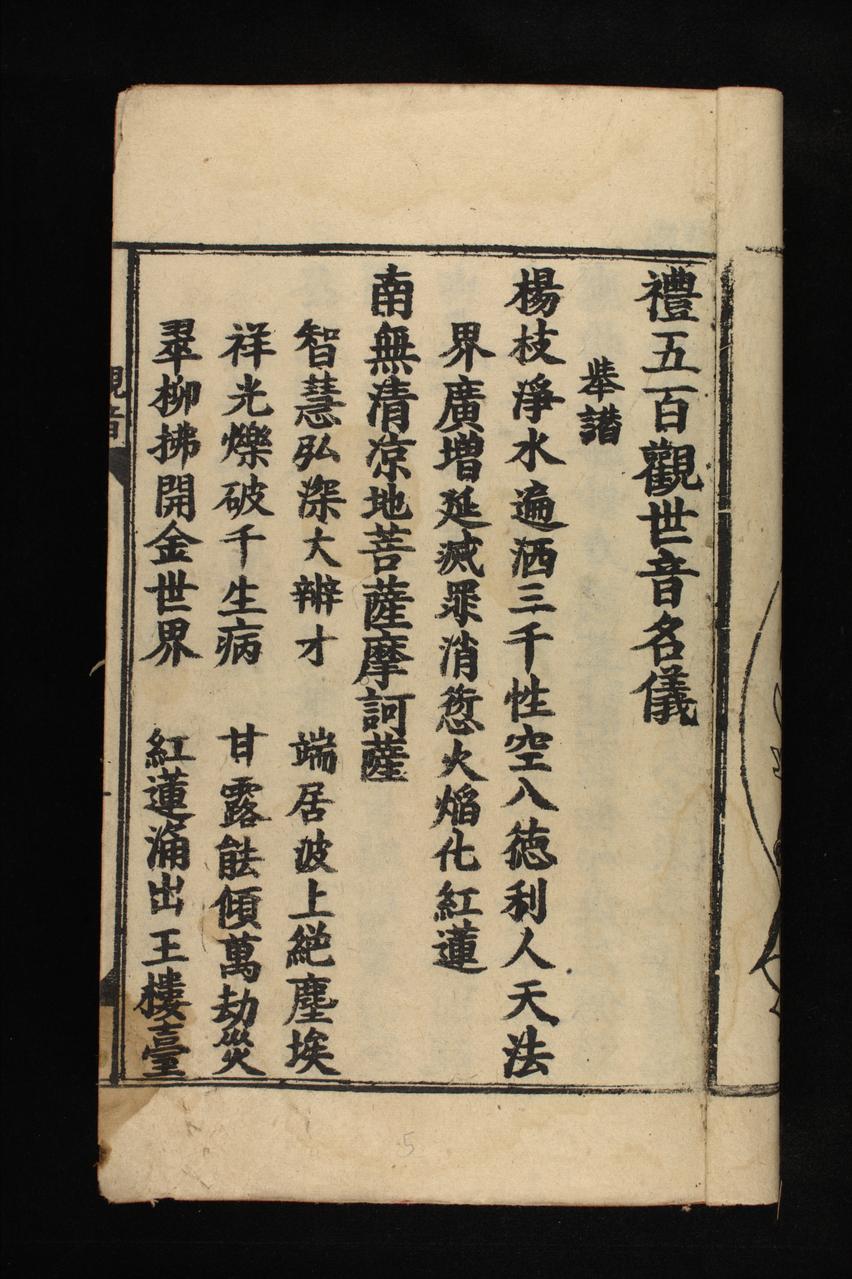 禮五百觀世音名儀
舉讃
楊枝淨水遍洒三千性空八徳利人天法
界廣增延滅罪消愆火焰化紅蓮
南無清凉地菩薩摩訶薩
智慧弘深大辨才 端居波上絕塵埃
祥光爍破千生病 甘露能傾萬劫災
翠柳拂開金世界 紅蓮涌出王樓臺
觀音
5